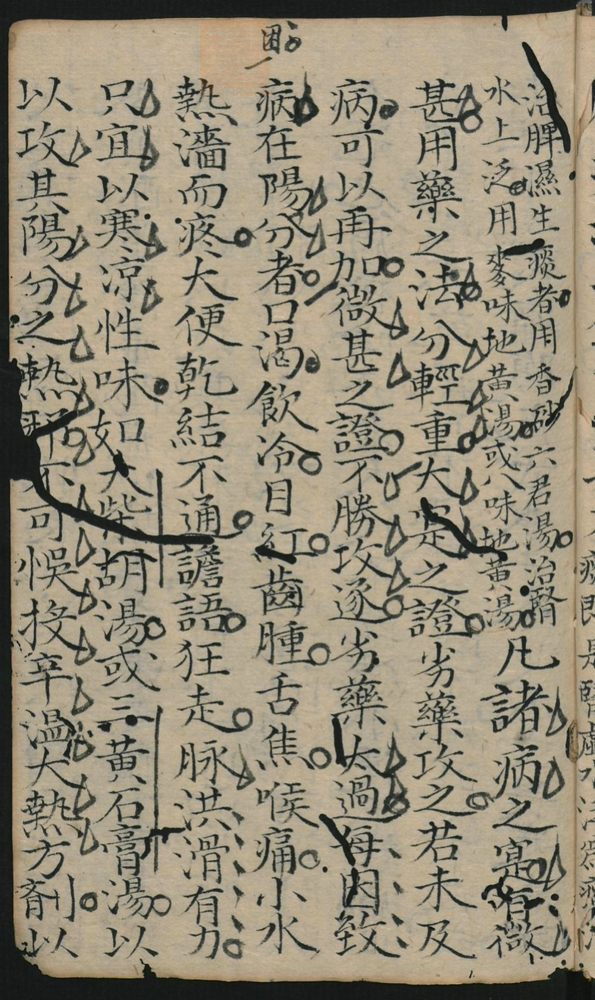 痰即是腎虛水
治脾濕生痰者用香砂六君湯治腎
水上泛用麥味地黃湯或八味地黃湯
凡諸病之寔有微
甚用藥之法分輕重大寔之證劣藥攻之若未及
病可以再加微甚之證不勝攻逐劣藥太過每因致
病在陽分者口渴飲冷目紅齒腫舌焦喉痛小水
熱濇而疼大便乾結不通譫語狂走脉洪滑有力
只宜以寒凉性味如大柴胡湯或三黃石膏湯以
以攻其陽分之熱邪不可悞投辛溫大熱方劑以